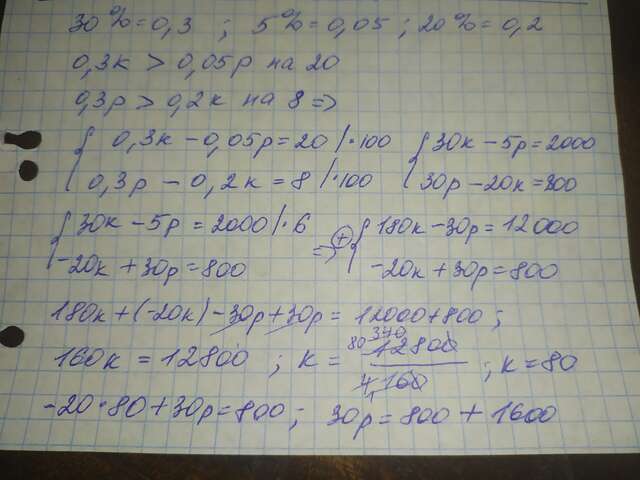 30% = 0,3 ; 5% = 0,05 ; 20% = 0,2
0,3к > 0,05р на 20
0,3р > 0,2к на 8 =>
{ 0,3к - 0,05р = 20 /·100 { 30к - 5р = 2000
0,3р - 0,2к = 8 /·100 30р - 20к = 800
{ 30к - 5р = 2000 /·6 => ⊕ { 180к - 30р = 12000
-20к + 30р = 800 -20к + 30р = 800
180к + (-20к) - 30р + 30р = 12000 + 800 ;
160к = 12800 ; к = 12800/160 ; к = 80
-20·80 + 30р = 800 ; 30р = 800 + 1600